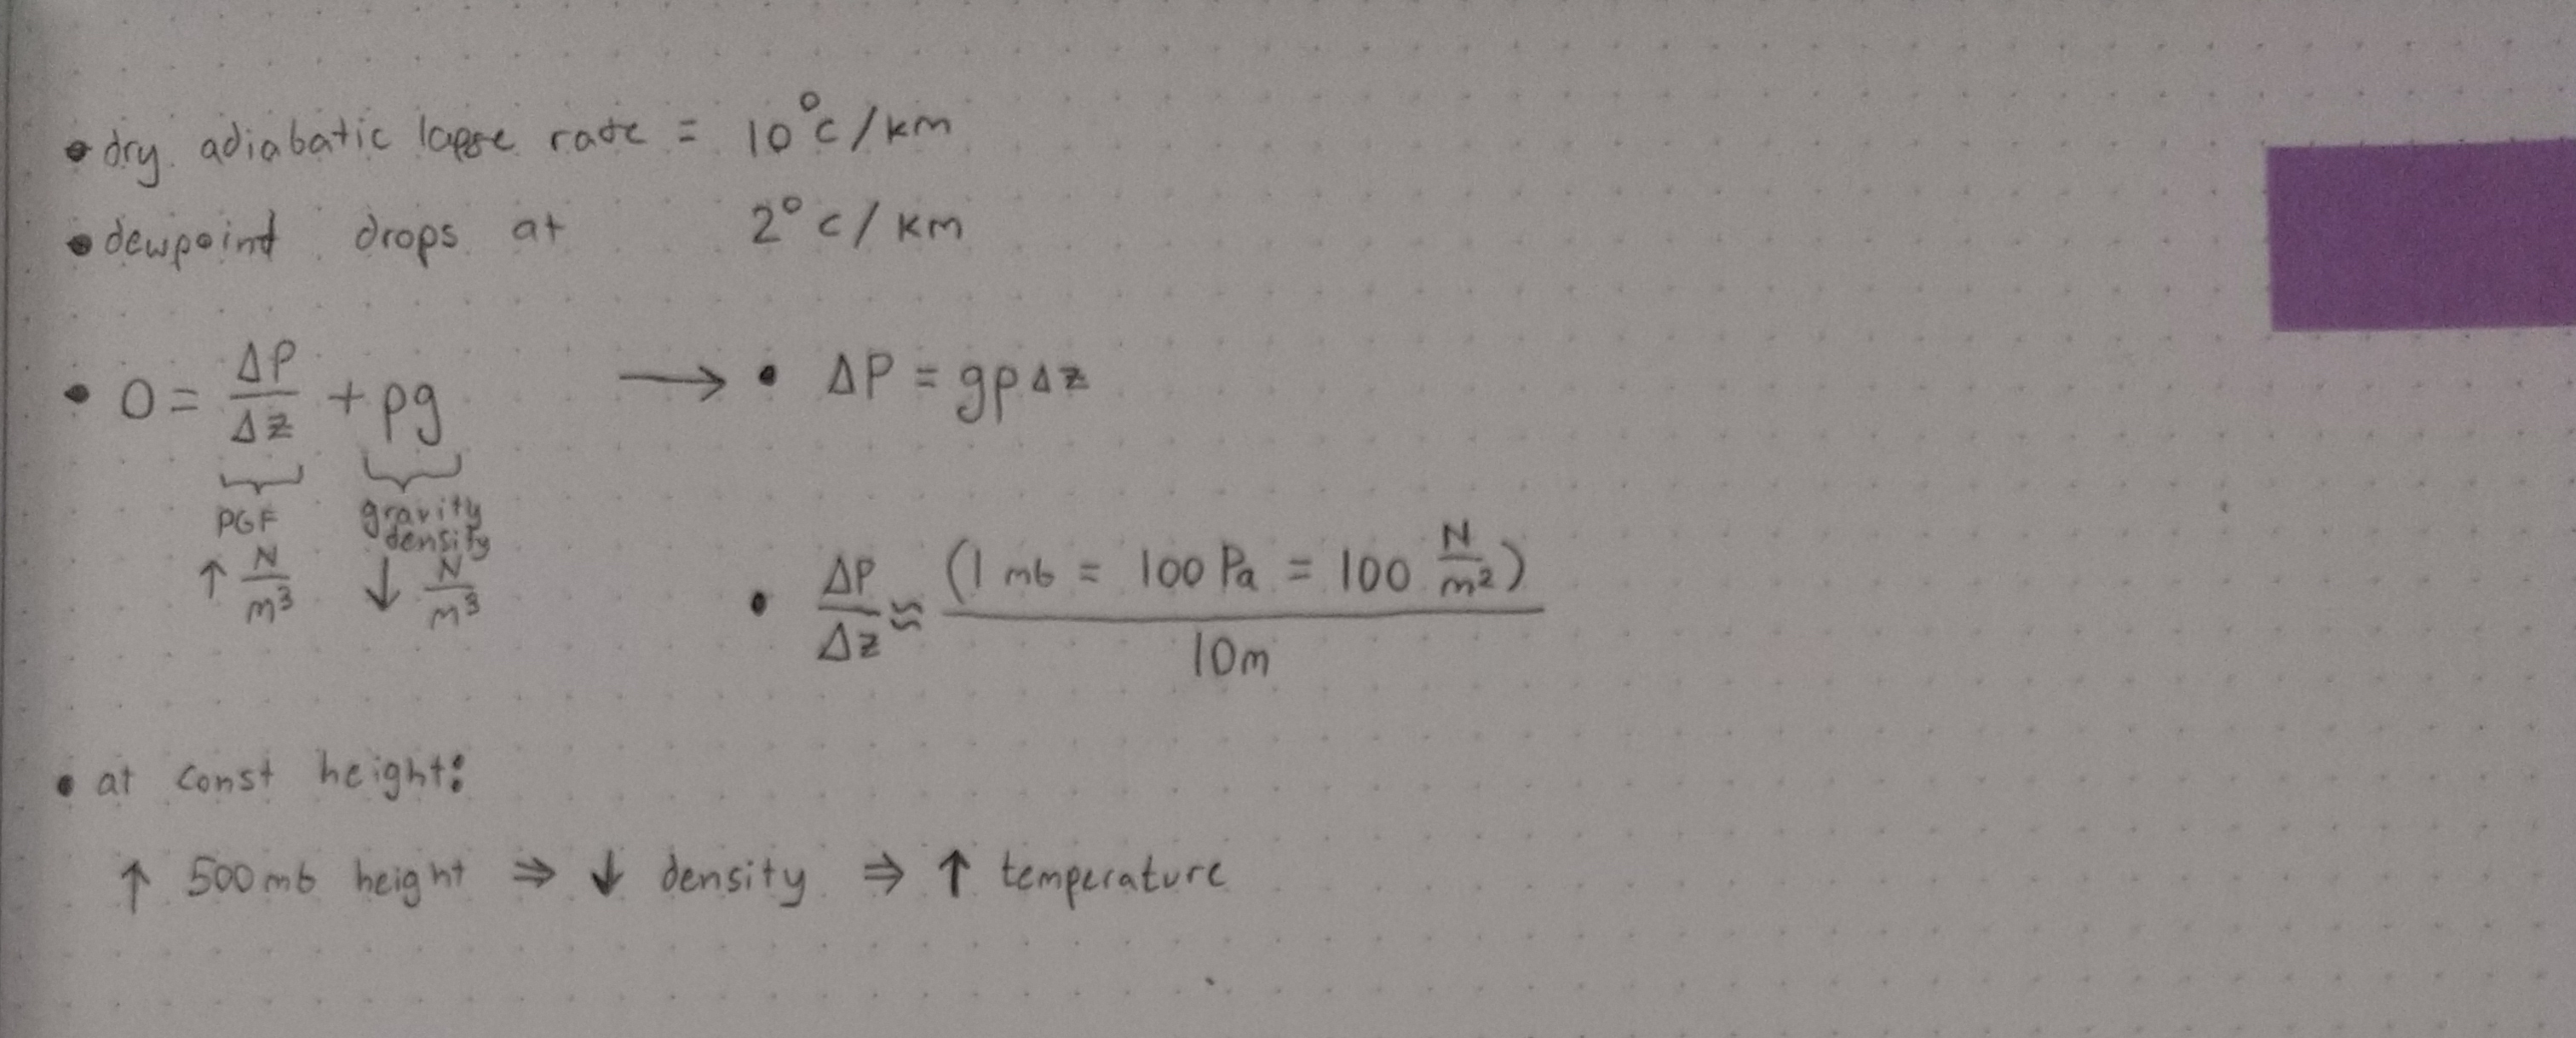 • dry adiabatic lapse rate = 10°C/km
• dewpoint drops at 2°C/km
• 0 = ΔP/Δz + ρg → • ΔP = gρΔz
PGF gravity
density
↑ N/m³ ↓ N/m³
• ΔP/Δz ≈ (1 mb = 100 Pa = 100 N/m²)/10m
• at const height:
↑ 500mb height ⇒ ↓ density ⇒ ↑ temperature